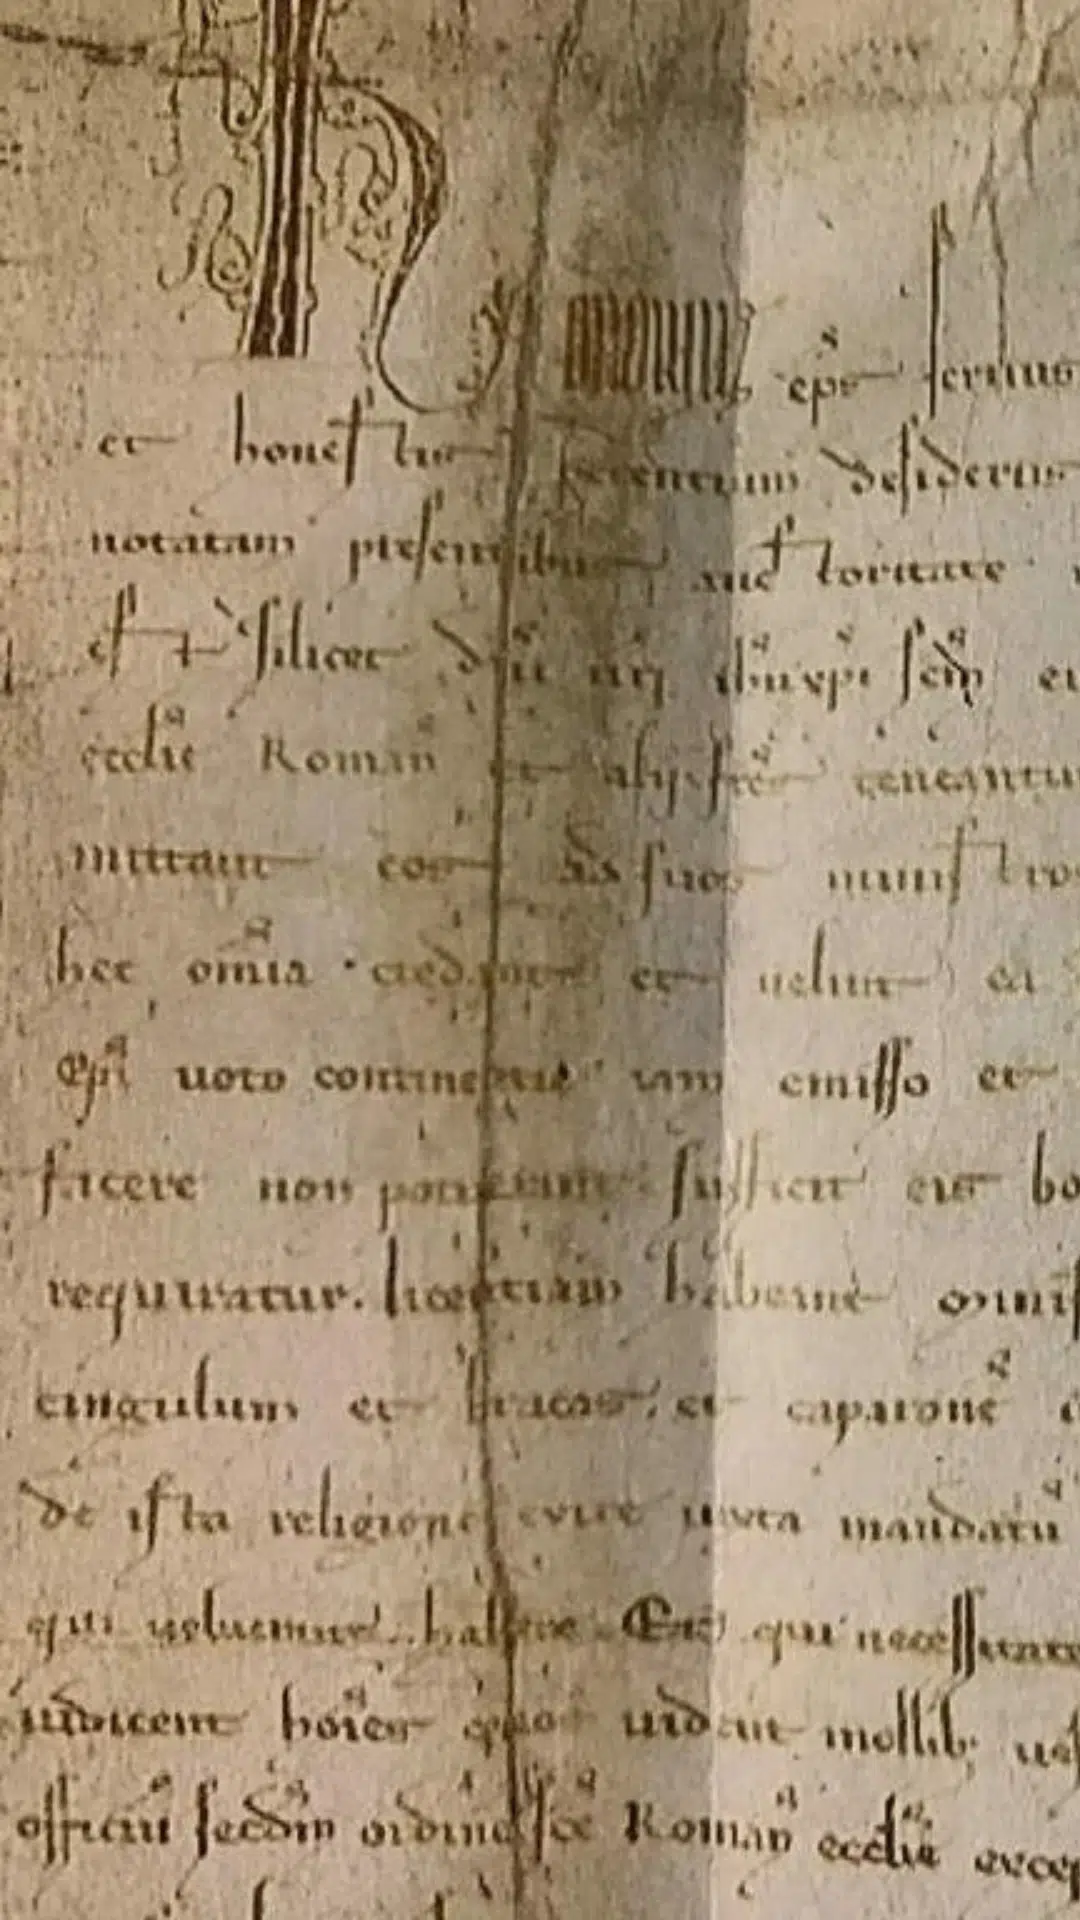 eps servus
et honestis petentium desideriis
notatam presentibus auctoritate
est hec scilicet dñi nri ihu xpi scm
ecclie Roman et alij fres teneantur
mittant eos ad suos ministros
hec omia credant et uelint ea
Epi uoto continentie iam emisso et
facere non potuerint sufficit eis bo
requiratur. licentiam habeant
cingulum et bracas. et caparone
de ista religione exire iuxta mandatu
qui uoluerint habere. Et qui necessitate
iudicent hoies quos uident mollib; ues
officiu secdm ordine sce Roman ecclie excep